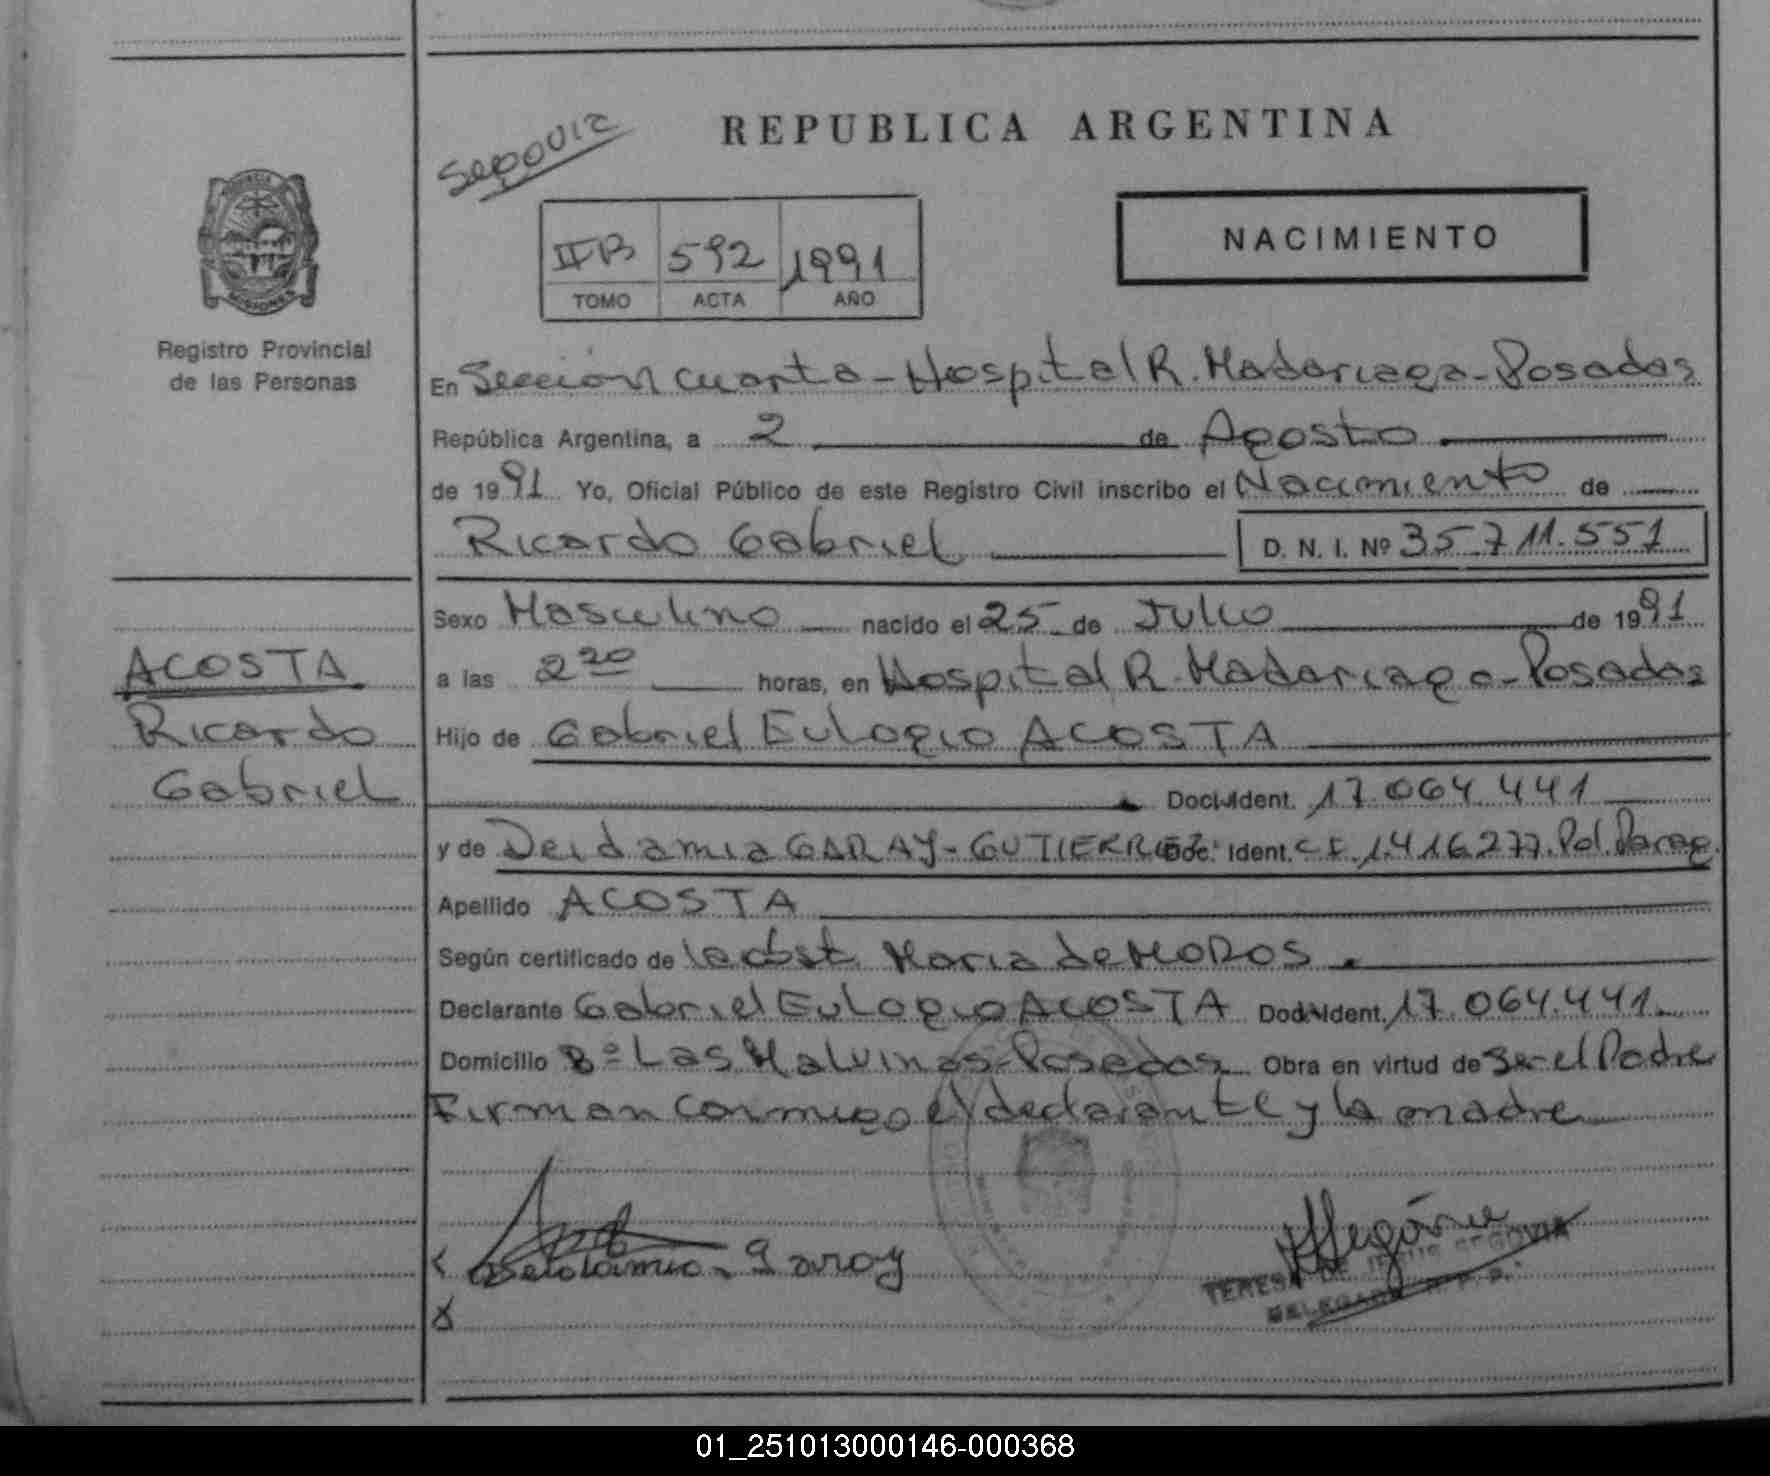 REPUBLICA ARGENTINA
NACIMIENTO
592 1991
TOMO ACTA AÑO
PROVINCIA DE MISIONES
Registro Provincial
de las Personas
En Sección cuarta - Hospital R. Madariaga - Posadas
República Argentina, a 2 de Agosto
de 1991 Yo, Oficial Público de este Registro Civil inscribo el Nacimiento de
Ricardo Gabriel D. N. I. Nº 35.711.551
ACOSTA
Ricardo
Gabriel
Sexo Masculino nacido el 25 de Julio de 1991
a las 2 20 horas, en Hospital R. Madariaga - Posadas
Hijo de Gabriel Eulogio ACOSTA
Doc. Ident. 17.064.441
y de Deidamia GARAY - GUTIERREZ Doc. Ident. C I. 1.416.277. Pol. Parag.
Apellido ACOSTA
Según certificado de la obst. Maria de MOROS.
Declarante Gabriel Eulogio ACOSTA Doc. Ident. 17.064.441.
Domicilio Bº Las Malvinas - Posadas Obra en virtud de Ser el Padre
Firman conmigo el declarante y la madre
Deidamia Garay
TERESA DE JESUS SEGOVIA
DELEGADA R. P. P.
01_251013000146-000368